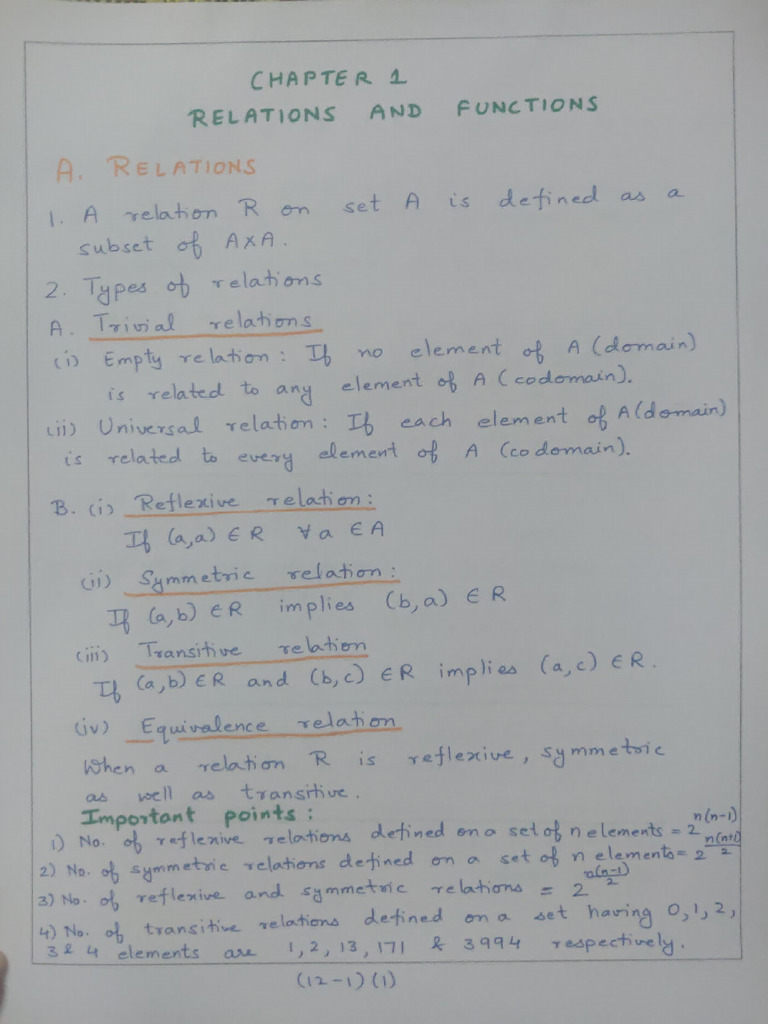 CHAPTER 1
RELATIONS AND FUNCTIONS
A. RELATIONS
1. A relation R on set A is defined as a
subset of A×A.
2. Types of relations
A. Trivial relations
(i) Empty relation : If no element of A (domain)
is related to any element of A (codomain).
(ii) Universal relation : If each element of A (domain)
is related to every element of A (codomain).
B. (i) Reflexive relation :
If (a,a) ∈ R ∀ a ∈ A
(ii) Symmetric relation :
If (a,b) ∈ R implies (b,a) ∈ R
(iii) Transitive relation
If (a,b) ∈ R and (b,c) ∈ R implies (a,c) ∈ R.
(iv) Equivalence relation
When a relation R is reflexive, symmetric
as well as transitive.
Important points :
1) No. of reflexive relations defined on a set of n elements = 2^n(n-1)
2) No. of symmetric relations defined on a set of n elements = 2^n(n+1)/2
3) No. of reflexive and symmetric relations = 2^n(n-1)/2
4) No. of transitive relations defined on a set having 0,1,2,
3 & 4 elements are 1, 2, 13, 171 & 3994 respectively.
(12-1) (1)